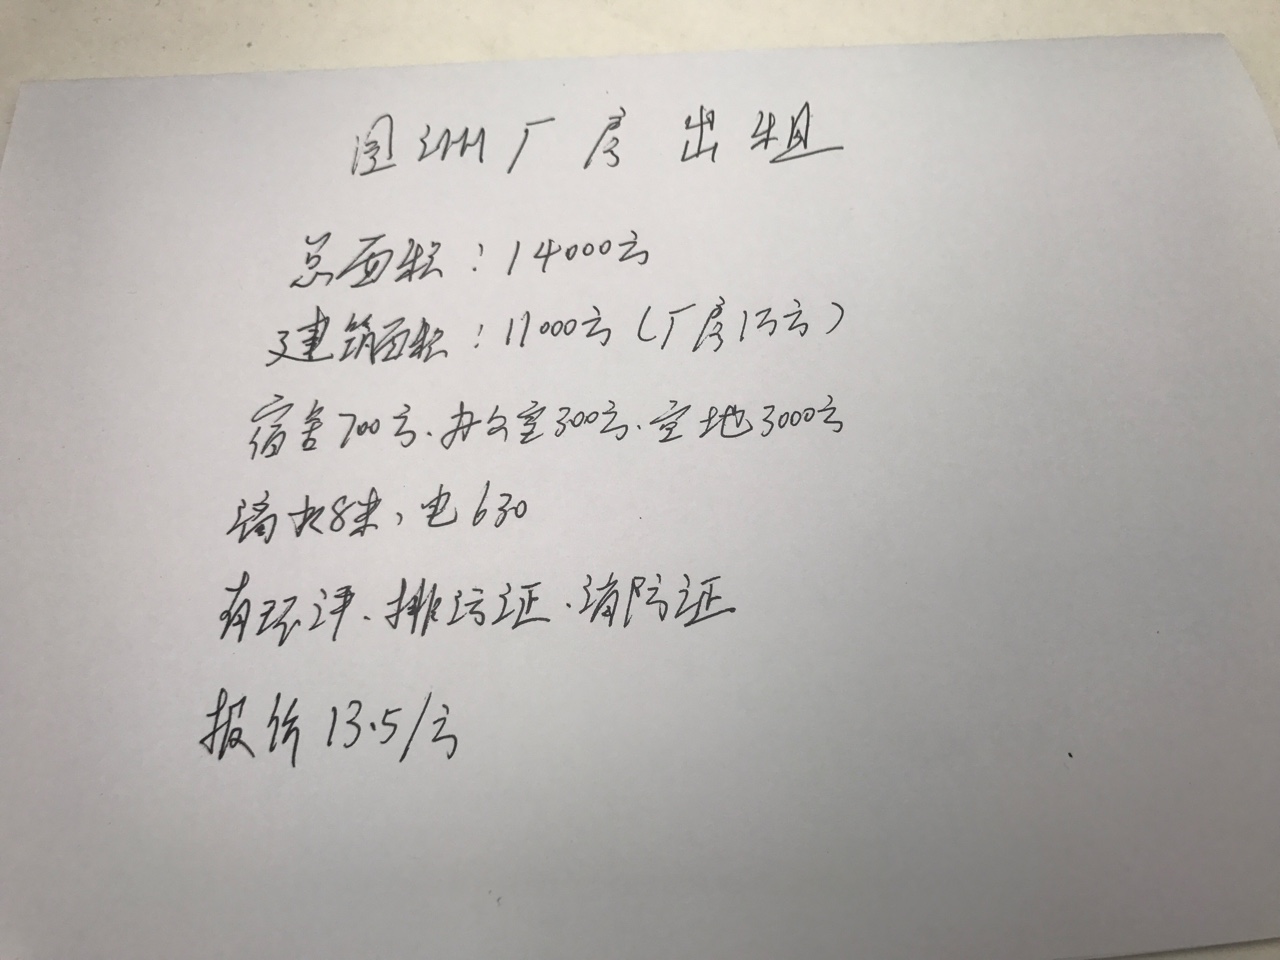 园洲厂房出租
总面积：14000方
建筑面积：11000方（厂房1万方）
宿舍700方、办公室300方、空地3000方
滴水8米，电630
有环评、排污证、消防证
报价13.5/方